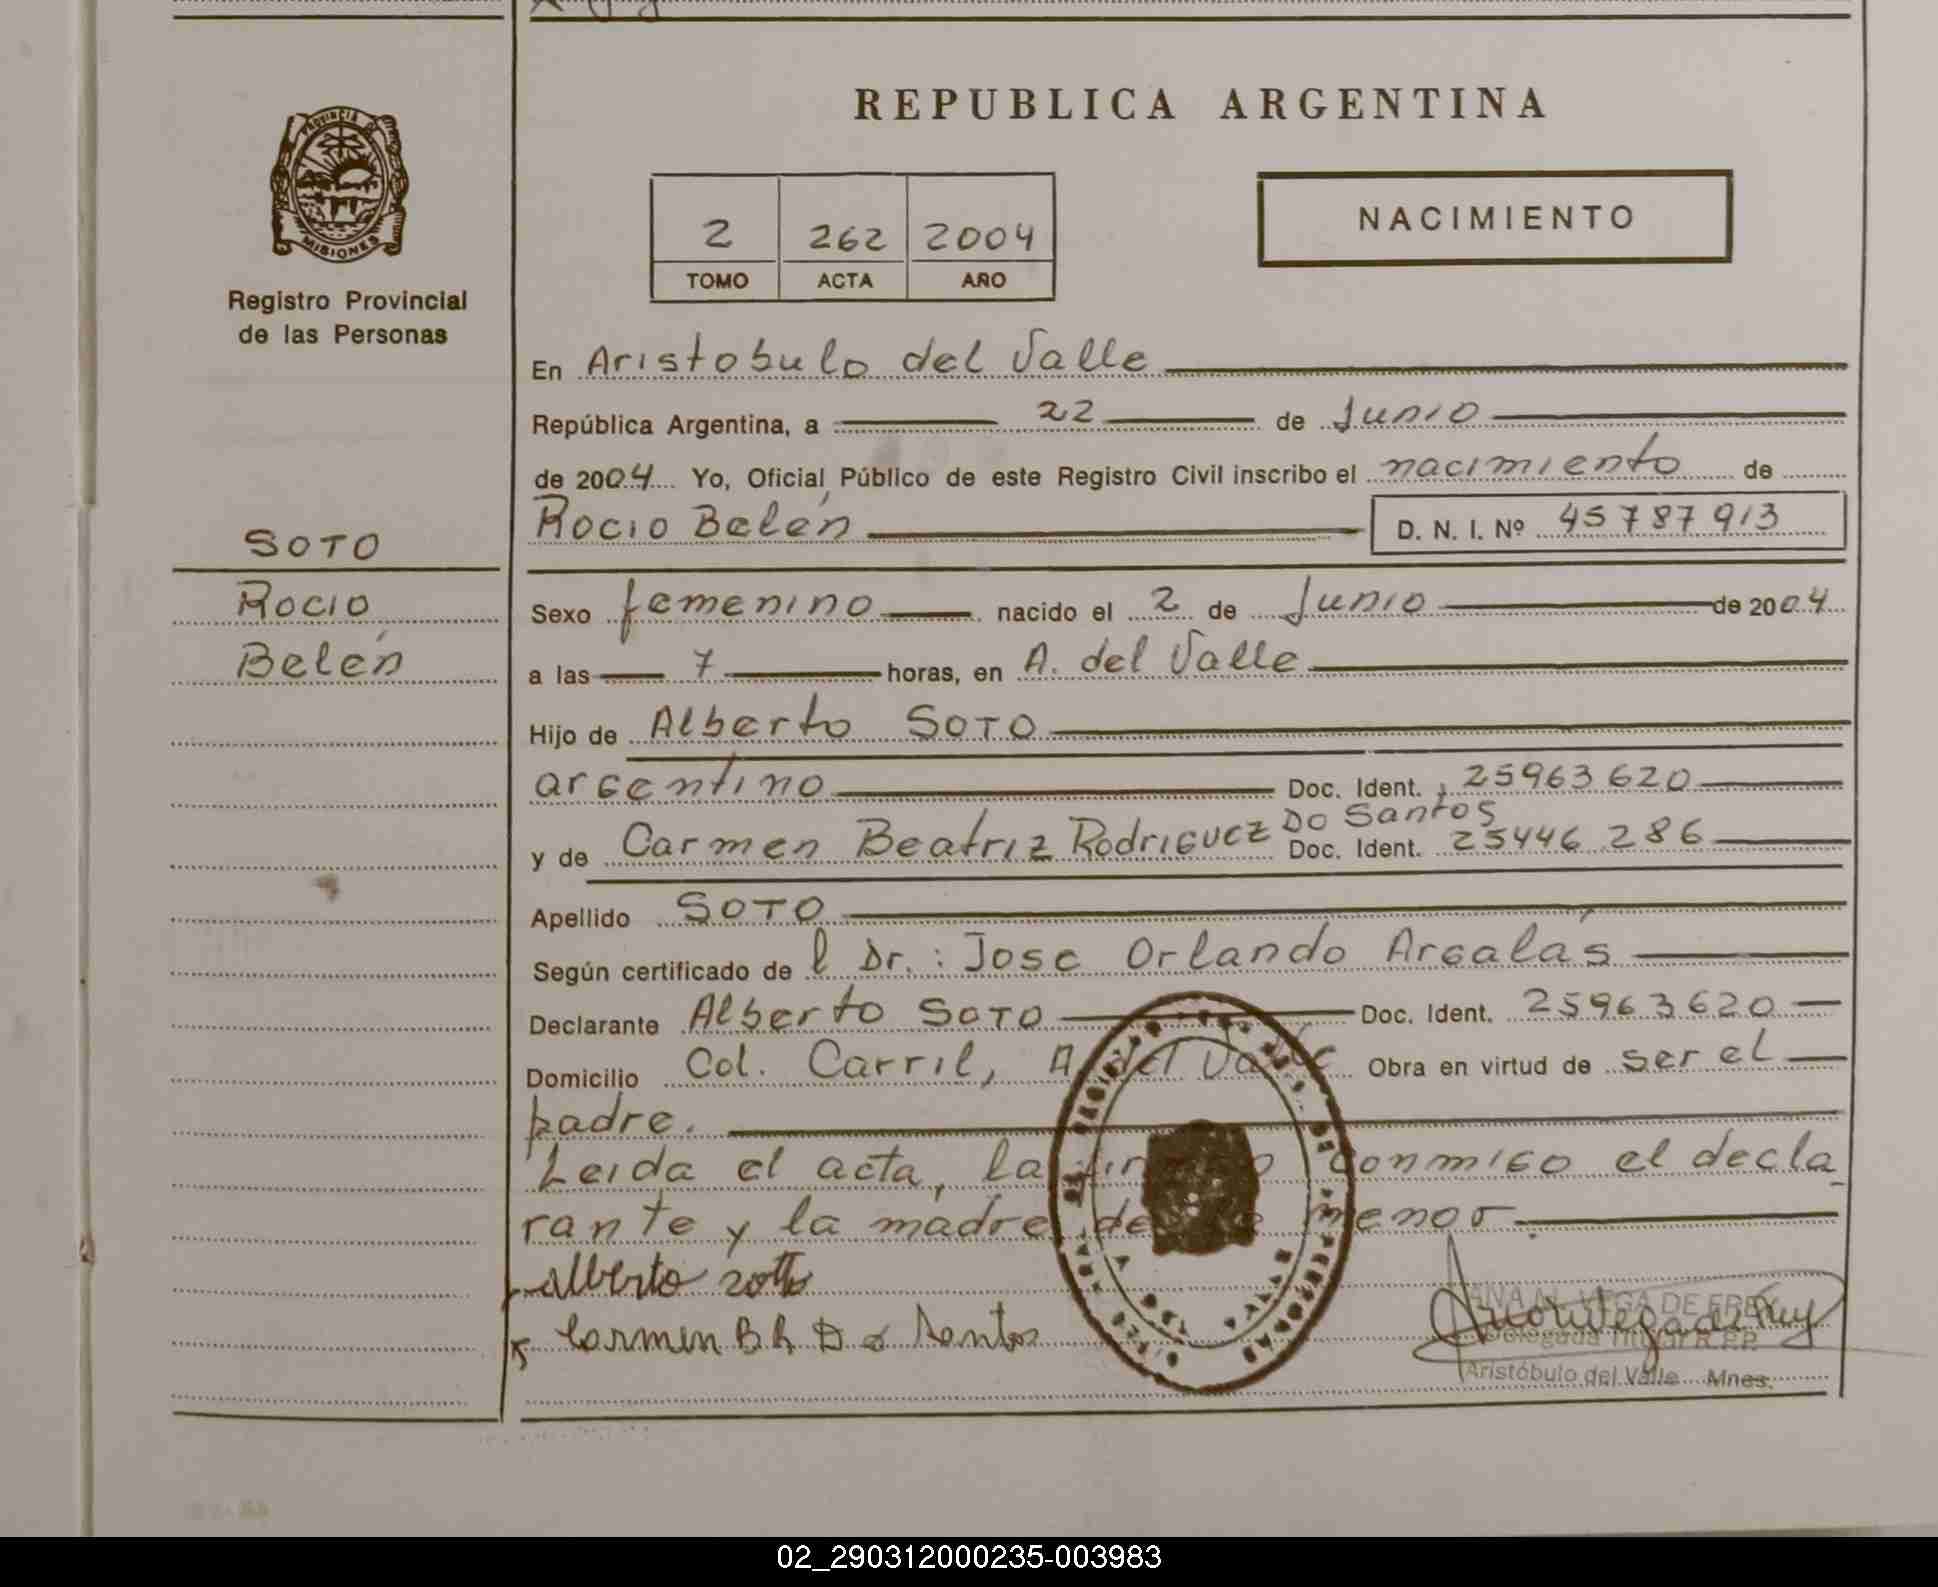 REPUBLICA ARGENTINA
PROVINCIA DE
MISIONES
Registro Provincial
de las Personas
2 262 2004
TOMO ACTA AÑO
NACIMIENTO
SOTO
Rocio
Belén
En Aristobulo del Valle
República Argentina, a 22 de Junio
de 2004 Yo, Oficial Público de este Registro Civil inscribo el nacimiento de
Rocio Belén D. N. I. Nº 45787913
Sexo femenino nacido el 2 de Junio de 2004
a las 7 horas, en A. del Valle
Hijo de Alberto SOTO
argentino Doc. Ident. 25963620
y de Carmen Beatriz Rodriguez Do Santos Doc. Ident. 25446286
Apellido SOTO
Según certificado de l Dr.: Jose Orlando Argalás
Declarante Alberto SOTO Doc. Ident. 25963620
Domicilio Col. Carril, A. del Valle Obra en virtud de ser el
padre.
Leida el acta, la conmigo el decla
rante y la madre de menor
Alberto sotto
Carmen B R D o Santos
ANA M. VEGA DE FREY
Delegada Titular R.P.P.
Aristóbulo del Valle Mnes.
02_290312000235-003983